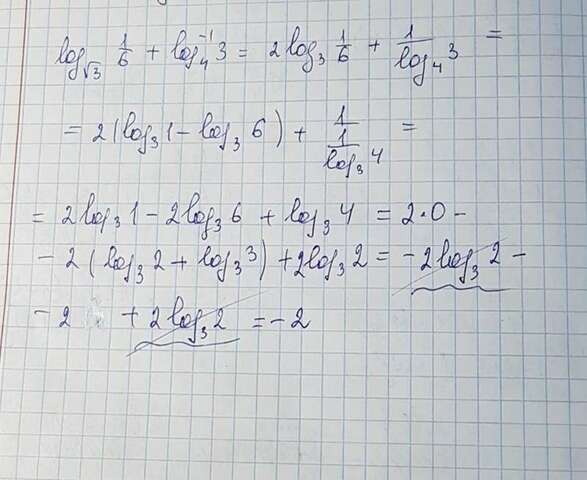 log_√3 1/6 + log₄⁻¹ 3 = 2 log₃ 1/6 + 1/(log₄ 3) =
= 2 (log₃ 1 − log₃ 6) + 1/(1/(log₃ 4)) =
= 2 log₃ 1 − 2 log₃ 6 + log₃ 4 = 2·0 −
− 2 (log₃ 2 + log₃ 3) + 2 log₃ 2 = − 2 log₃ 2 −
− 2 + 2 log₃ 2 = − 2